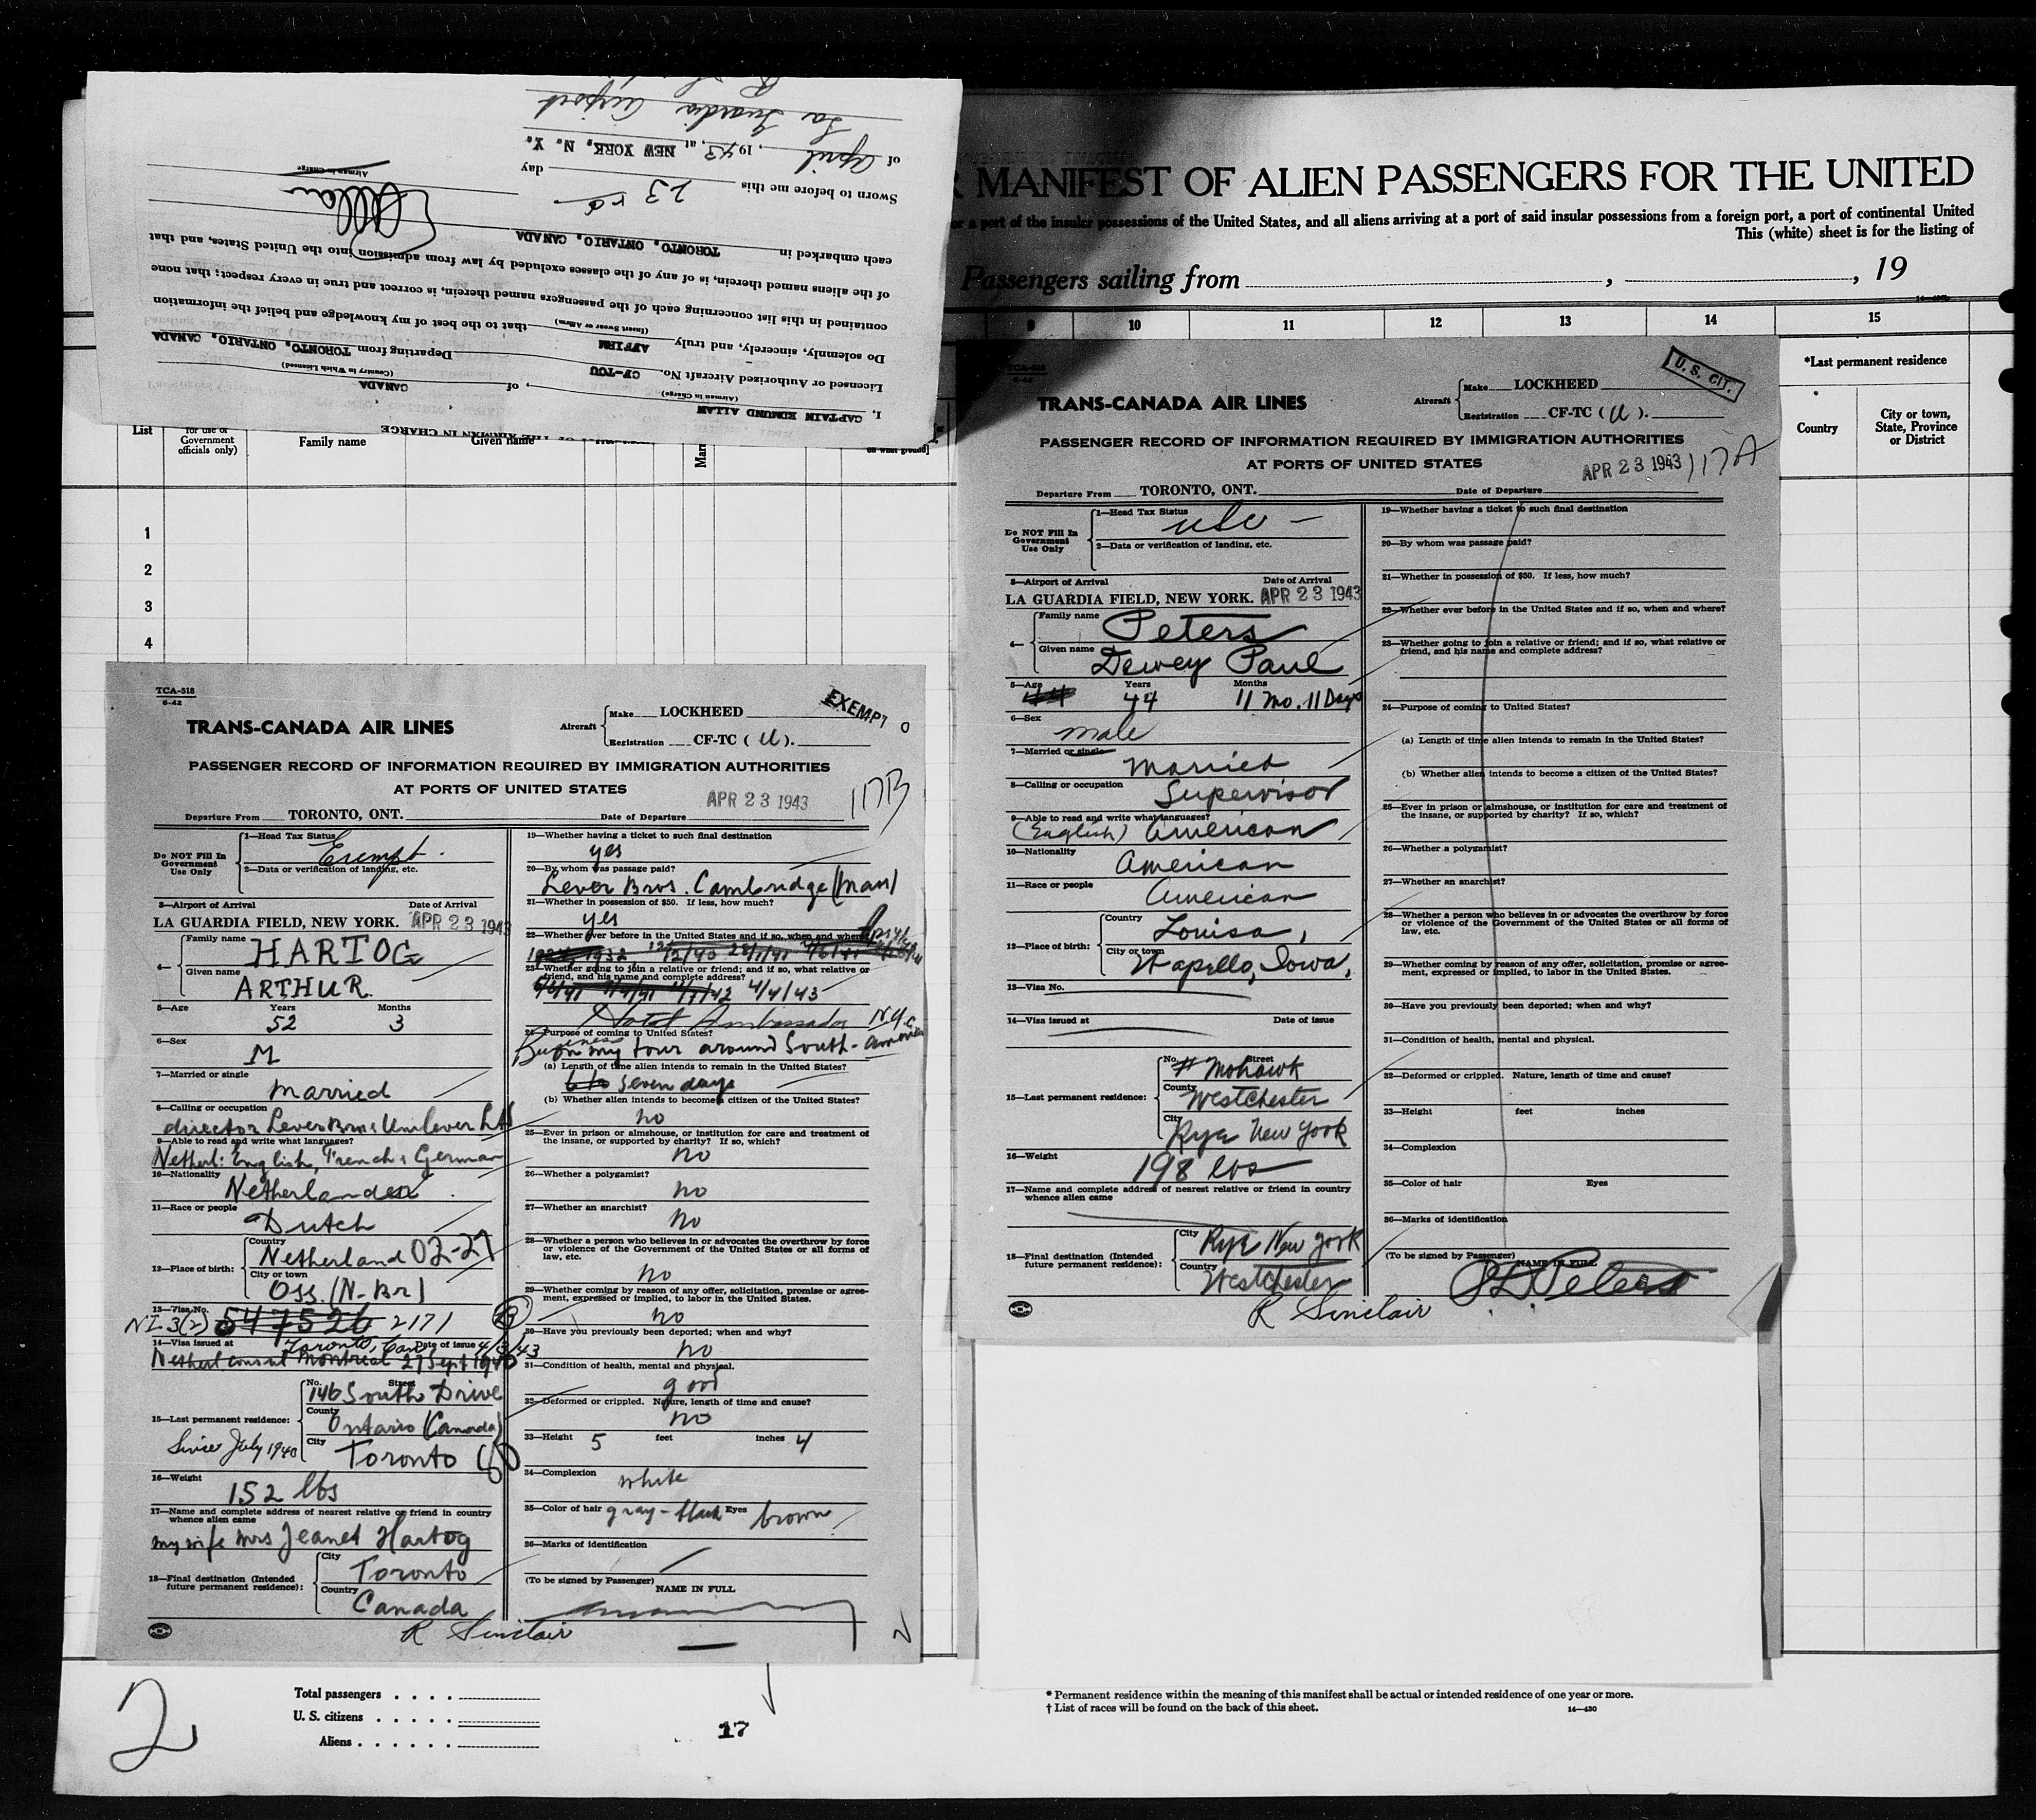 I, CAPTAIN EDMUND ALLAN, of CANADA
(Airman in Charge) (Country in Which Licensed)
Licensed or Authorized Aircraft No. CF-TCU Departing from TORONTO, ONTARIO, CANADA
Do solemnly, sincerely, and truly AFFIRM that to the best of my knowledge and belief the information
(Insert Swear or Affirm)
contained in this list concerning each of the passengers named therein, is correct and true in every respect; that none
of the aliens named therein, is of any of the classes excluded by law from admission into the United States, and that
each embarked in TORONTO, ONTARIO, CANADA
Allan
Airman in Charge
Sworn to before me this 23rd day
of April, 1943, at NEW YORK, N. Y.
La Guardia Airport
MANIFEST OF ALIEN PASSENGERS FOR THE UNITED
or a part of the insular possessions of the United States, and all aliens arriving at a port of said insular possessions from a foreign port, a port of continental United
This (white) sheet is for the listing of
Passengers sailing from , , 19
9 10 11 12 13 14 15
*Last permanent residence
Country
City or town, State, Province or District
List
for use of Government officials only)
Family name
Given name
on what ground]
1
2
3
4
TCA-518
6-42
EXEMPT
TRANS-CANADA AIR LINES
Aircraft
Make LOCKHEED
Registration CF-TC ( U ).
PASSENGER RECORD OF INFORMATION REQUIRED BY IMMIGRATION AUTHORITIES
AT PORTS OF UNITED STATES
APR 23 1943
17B
Departure From TORONTO, ONT. Date of Departure
Do NOT Fill In Government Use Only
1—Head Tax Status Exempt.
2—Data or verification of landing, etc.
3—Airport of Arrival Date of Arrival
LA GUARDIA FIELD, NEW YORK. APR 23 1943
4—
Family name HARTOG
Given name ARTHUR
5—Age Years Months
52 3
6—Sex
M
7—Married or single
Married
8—Calling or occupation
director Lever Bros & Unilever Ltd
9—Able to read and write what languages?
Netherl: English, French & German
10—Nationality
Netherlander
11—Race or people
Dutch
12—Place of birth:
Country Netherland 02-27
City or town
Oss. (N-Br)
13—Visa No.
NI 3(2) 547526 2171
14—Visa issued at Toronto, Can Date of issue 4/3/43
Netherl consul Montreal 27 Sept 1940
15—Last permanent residence:
Since July 1940
No. Street
146 South Drive
County
Ontario (Canada)
City Toronto
16—Weight
152 lbs
17—Name and complete address of nearest relative or friend in country whence alien came
my wife Mrs Jeanet Hartog
18—Final destination (Intended future permanent residence):
City Toronto
Country Canada
R Sinclair
19—Whether having a ticket to such final destination
yes
20—By whom was passage paid?
Lever Bros. Cambridge (Mass)
21—Whether in possession of $50. If less, how much?
yes
22—Whether ever before in the United States and if so, when and where?
1932
23—Whether going to join a relative or friend; and if so, what relative or friend, and his name and complete address?
4/4/43
Hotel Ambassador N.Y.C.
24—Purpose of coming to United States?
Business on my tour around South-America
(a) Length of time alien intends to remain in the United States?
6 to seven days
(b) Whether alien intends to become a citizen of the United States?
no
25—Ever in prison or almshouse, or institution for care and treatment of the insane, or supported by charity? If so, which?
no
26—Whether a polygamist?
no
27—Whether an anarchist?
no
28—Whether a person who believes in or advocates the overthrow by force or violence of the Government of the United States or all forms of law, etc.
no
29—Whether coming by reason of any offer, solicitation, promise or agreement, expressed or implied, to labor in the United States.
no
30—Have you previously been deported; when and why?
no
31—Condition of health, mental and physical.
good
32—Deformed or crippled. Nature, length of time and cause?
no
33—Height 5 feet inches 4
34—Complexion
white
35—Color of hair gray-black Eyes brown
36—Marks of identification
(To be signed by Passenger)
NAME IN FULL
TCA-518
6-42
U. S. CIT.
TRANS-CANADA AIR LINES
Aircraft
Make LOCKHEED
Registration CF-TC ( U ).
PASSENGER RECORD OF INFORMATION REQUIRED BY IMMIGRATION AUTHORITIES
AT PORTS OF UNITED STATES
APR 23 1943
17A
Departure From TORONTO, ONT. Date of Departure
Do NOT Fill In Government Use Only
1—Head Tax Status
USC —
2—Data or verification of landing, etc.
3—Airport of Arrival Date of Arrival
LA GUARDIA FIELD, NEW YORK. APR 23 1943
4—
Family name Peters
Given name Dewey Paul
5—Age Years Months
44 44 11 mo. 11 Days
6—Sex
male
7—Married or single
Married
8—Calling or occupation
Supervisor
9—Able to read and write what languages?
(English) American
10—Nationality
American
11—Race or people
American
12—Place of birth:
Country Louisa,
City or town Wapello, Iowa,
13—Visa No.
14—Visa issued at Date of issue
15—Last permanent residence:
No. Street
# Mohawk
County
Westchester
City
Rye New York
16—Weight
198 lbs
17—Name and complete address of nearest relative or friend in country whence alien came
18—Final destination (Intended future permanent residence):
City Rye New York
Country Westchester
R Sinclair
19—Whether having a ticket to such final destination
20—By whom was passage paid?
21—Whether in possession of $50. If less, how much?
22—Whether ever before in the United States and if so, when and where?
23—Whether going to join a relative or friend; and if so, what relative or friend, and his name and complete address?
24—Purpose of coming to United States?
(a) Length of time alien intends to remain in the United States?
(b) Whether alien intends to become a citizen of the United States?
25—Ever in prison or almshouse, or institution for care and treatment of the insane, or supported by charity? If so, which?
26—Whether a polygamist?
27—Whether an anarchist?
28—Whether a person who believes in or advocates the overthrow by force or violence of the Government of the United States or all forms of law, etc.
29—Whether coming by reason of any offer, solicitation, promise or agreement, expressed or implied, to labor in the United States.
30—Have you previously been deported; when and why?
31—Condition of health, mental and physical.
32—Deformed or crippled. Nature, length of time and cause?
33—Height feet inches
34—Complexion
35—Color of hair Eyes
36—Marks of identification
(To be signed by Passenger)
NAME IN FULL
D Peters
2
Total passengers
U. S. citizens
Aliens
17
* Permanent residence within the meaning of this manifest shall be actual or intended residence of one year or more.
† List of races will be found on the back of this sheet.
14—430